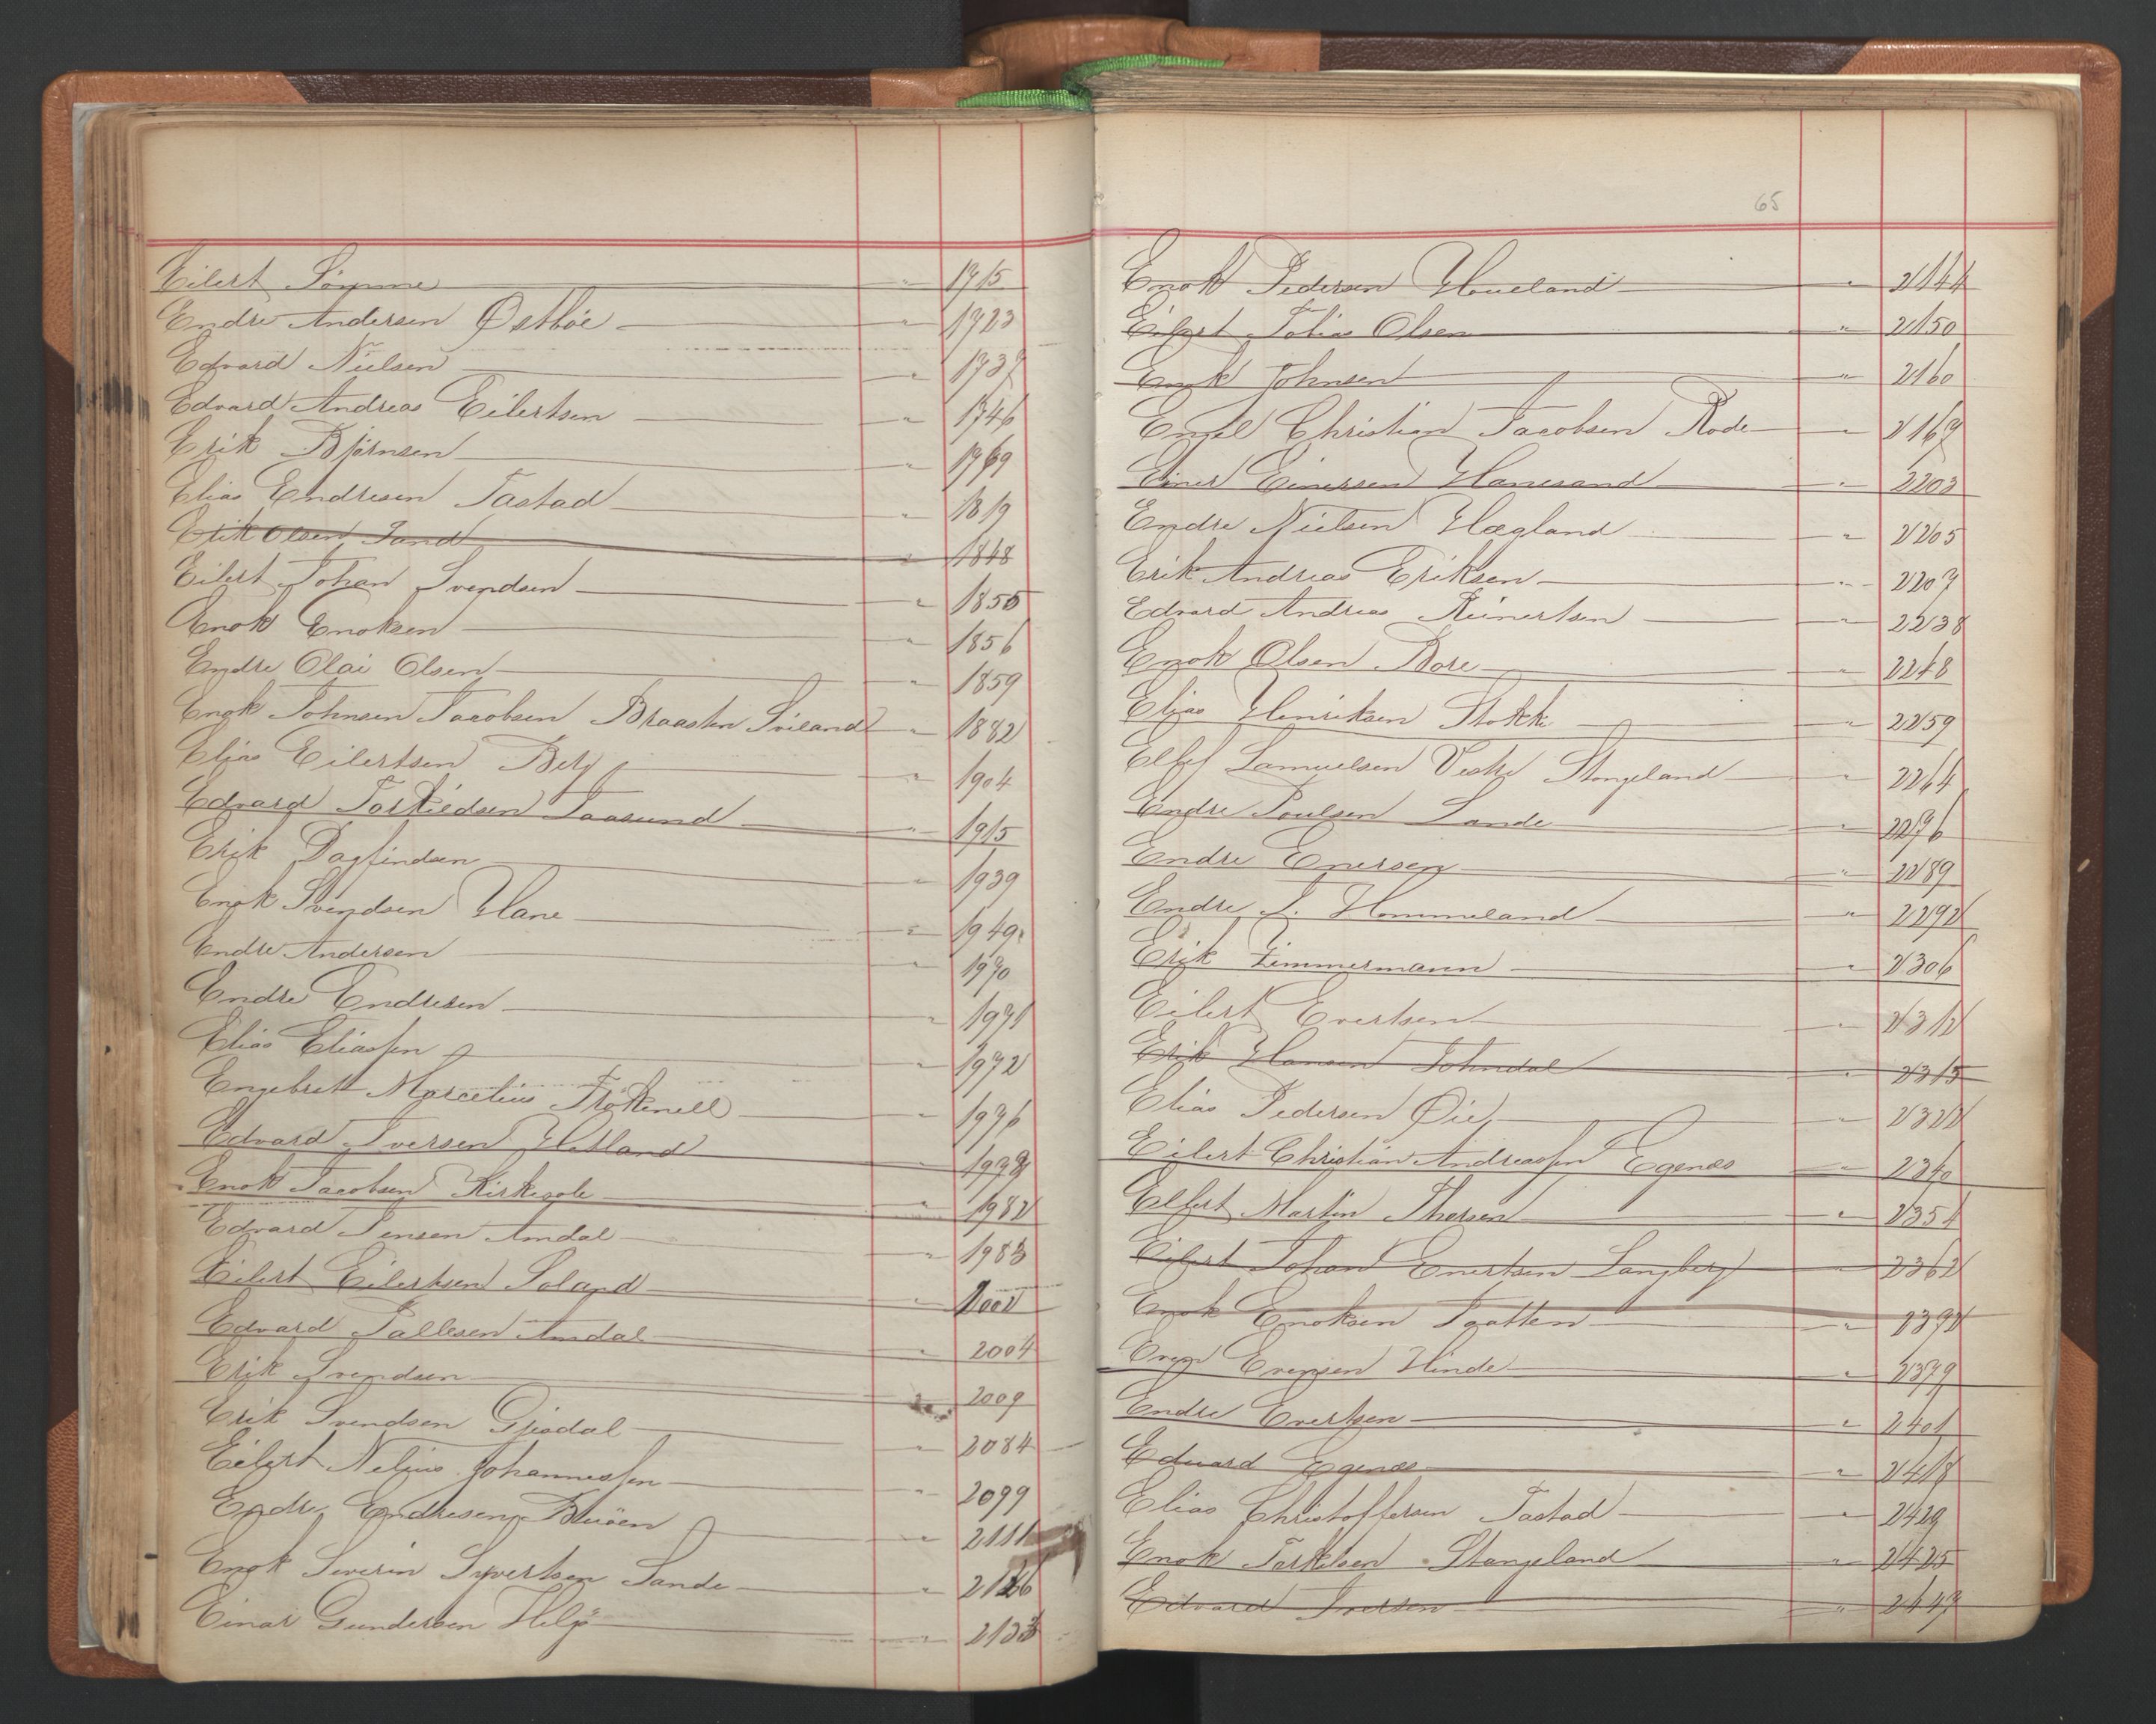 Eilert Sømme " 1715
Endre Andersen Østbøe " 1723
Edvard Nielsen " 1737
Edvard Andreas Eilertsen " 1746
Erik Bjørnsen " 1769
Elias Endresen Tastad " 1819
Erik Olsen Sand " 1848
Eilert Johan Svendsen " 1855
Enok Enoksen " 1856
Endre Olai Olsen " 1859
Enok Johnsen Jacobsen Braasten Sviland " 1882
Elias Eilertsen Berg " 1904
Edvard Torkildsen Taasund " 1915
Erik Dagfindsen " 1939
Enok Svendsen Hane " 1949
Endre Andersen " 1970
Endre Endresen " 1971
Elias Eliassen " 1972
Engebrett Marcelius " 1976
Edvard Iversen Hetland " 1978
Enok Jacobsen Kirkegole " 1982
Edvard Jensen Amdal " 1983
Eilert Eilertsen Soland " 2002
Edvard Pallesen Amdal " 2004
Erik Svendsen " 2009
Erik Svendsen Gjesdal " 2084
Eilert Nelius Johannessen " 2099
Endre Endresen " 2111
Enok Severin Syvertsen Sande " 2126
Einar Gundersen Helgø " 2133
65
Enok Pedersen Houeland " 2144
Eilert Tobias Olsen " 2150
Enok Johnsen " 2160
Emil Christian Jacobsen Rode " 2167
Einer Einersen Hanesand " 2203
Endre Nielsen Hægland " 2205
Erik Andreas Eriksen " 2207
Edvard Andreas Reinertsen " 2238
Enok Olsen Bore " 2248
Elias Henriksen Stokke " 2259
Samuelsen Vestre Stangeland " 2264
Endre Poulsen Lande " 2276
Endre Enersen " 2289
Endre J. Hommeland " 2292
Erik Zimmermann " 2306
Eilert Evertsen " 2312
Erik Hansen Johndal " 2315
Elias Pedersen Øie " 2322
Eilert Christian Andreassen Egenæs " 2340
Elfert Martin Thorsen " 2354
Eilert Johan Enertsen Langberg " 2362
Enok Enoksen Taatten " 2372
Even Evensen Hinde " 2379
Endre Evertsen " 2401
Edward Egenæs " 2418
Elias Christoffersen Tastad " 2429
Enok Torkelsen Stangeland " 2425
Edvard Iversen " 2447